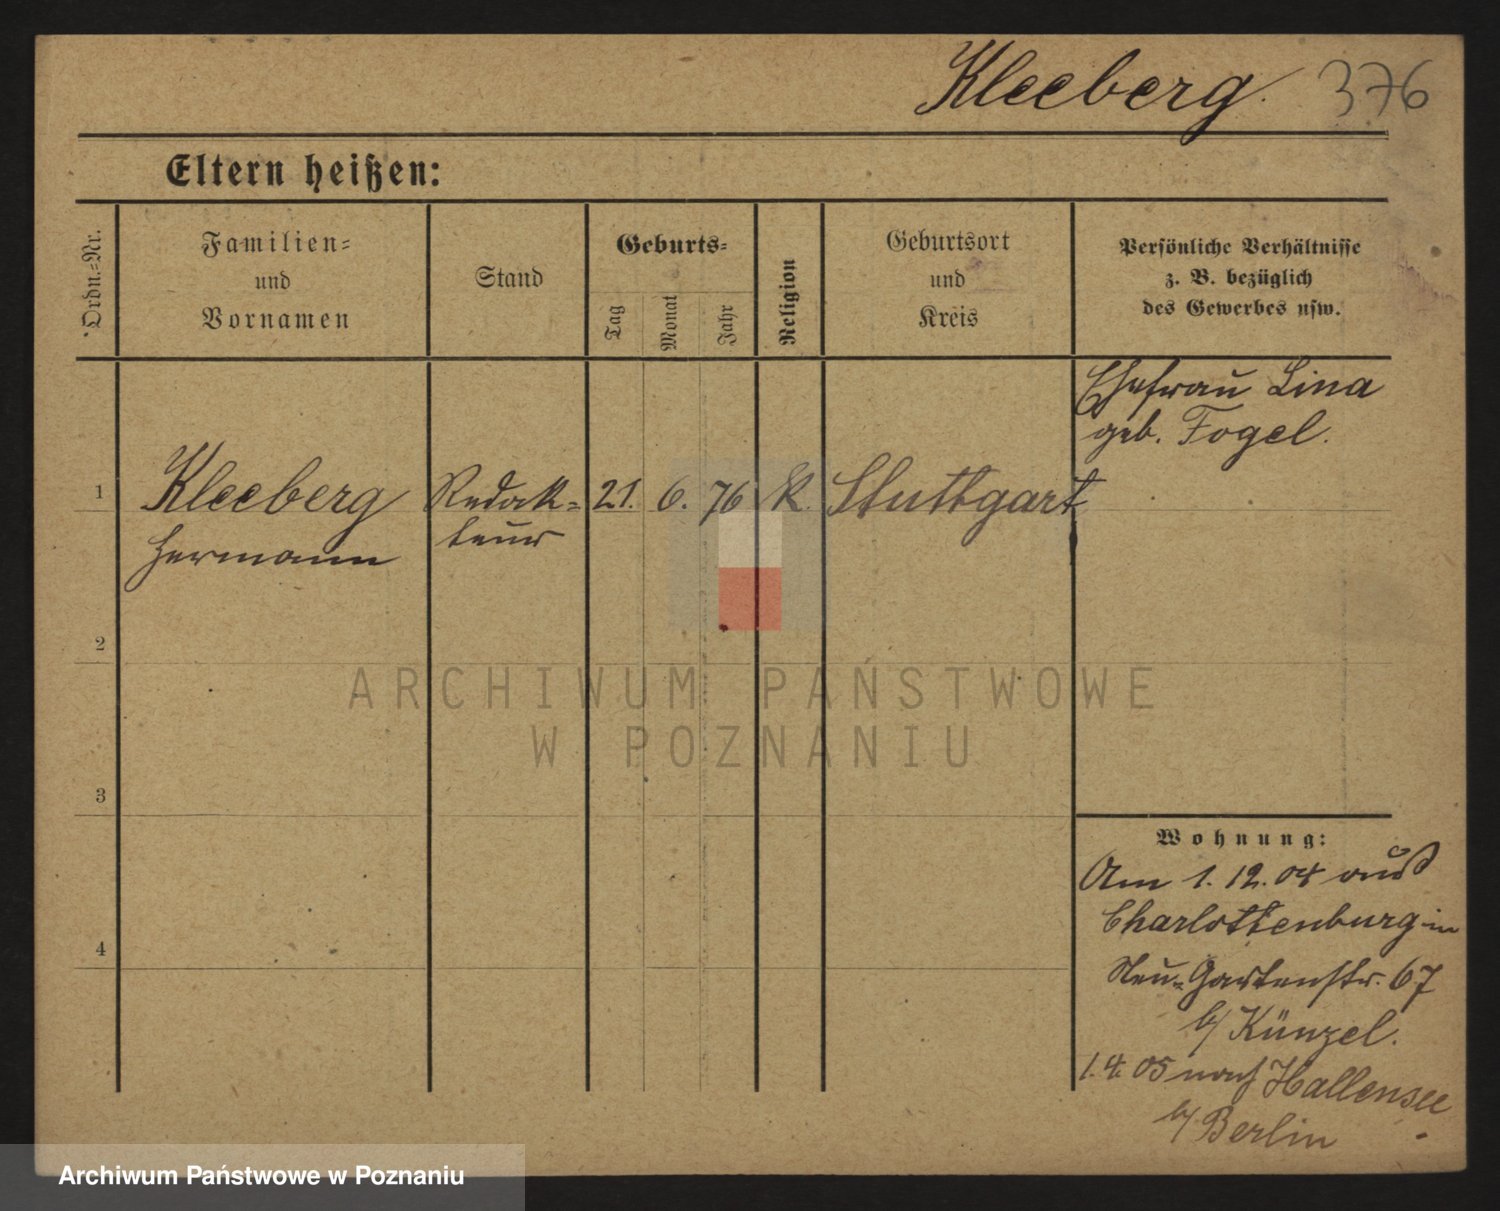 Kleeberg. 376
Eltern heißen:
Ordn.=Nr.
Familien=
und
Vornamen
Stand
Geburts=
Tag
Monat
Jahr
Religion
Geburtsort
und
Kreis
Persönliche Verhältnisse
z. B. bezüglich
des Gewerbes usw.
Ehefrau Lina
geb. Fogel.
1 Kleeberg Redak= 21. 6. 76 K. Stuttgart
Hermann teur
2
3
4
Wohnung:
Am 1. 12. 04 aus
Charlottenburg in
Neu=Gartenstr. 67
b/ Künzel.
1. 4. 05 nach Hallensee
b/ Berlin
ARCHIWUM PAŃSTWOWE
W POZNANIU
Archiwum Państwowe w Poznaniu